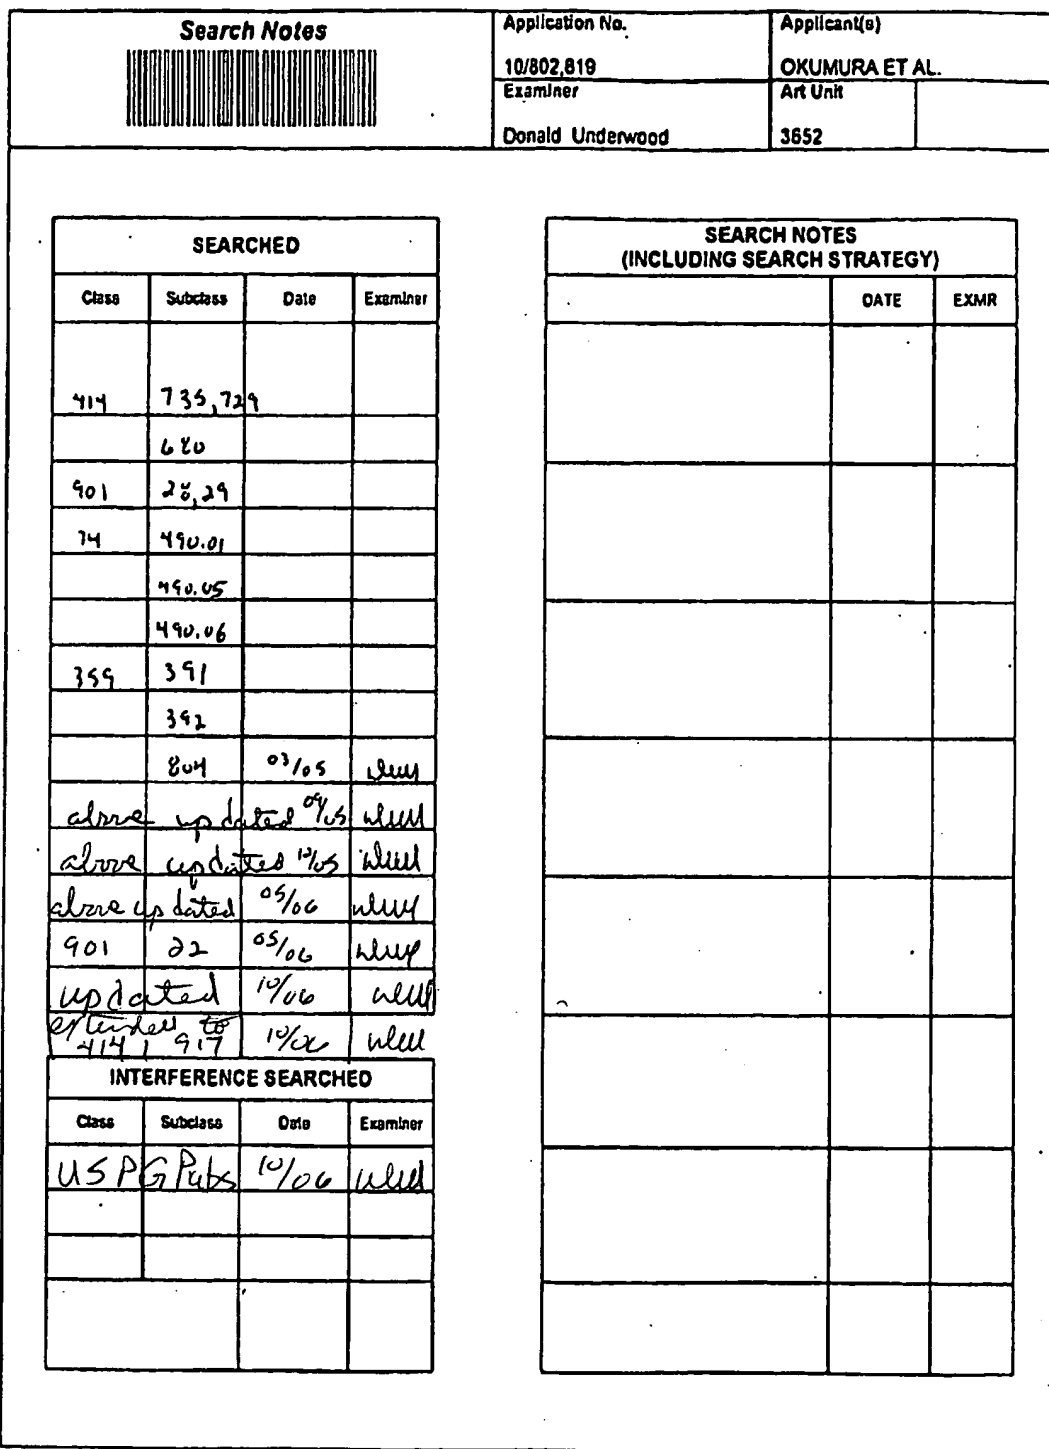 Search Notes
Application No.
Applicant(s)
10/802,819
OKUMURA ET AL.
Examiner
Art Unit
Donald Underwood
3652
SEARCHED
Class Subclass Date Examiner
414 735,729
680
901 28,29
74 490.01
490.05
490.06
359 391
392
804 03/05
above updated 09/05
above updated 12/05
above updated 05/06
901 22 05/06
updated 10/06
extended to
414 / 917 10/06
INTERFERENCE SEARCHED
Class Subclass Date Examiner
US PG Pubs 10/06
SEARCH NOTES
(INCLUDING SEARCH STRATEGY)
DATE EXMR